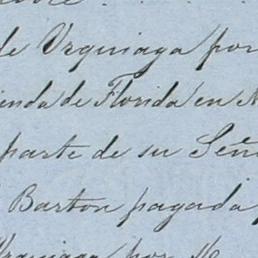 de Urquiaga por
enda de Florida en
parte de su Señ
Barton pagada
Urquiaga por